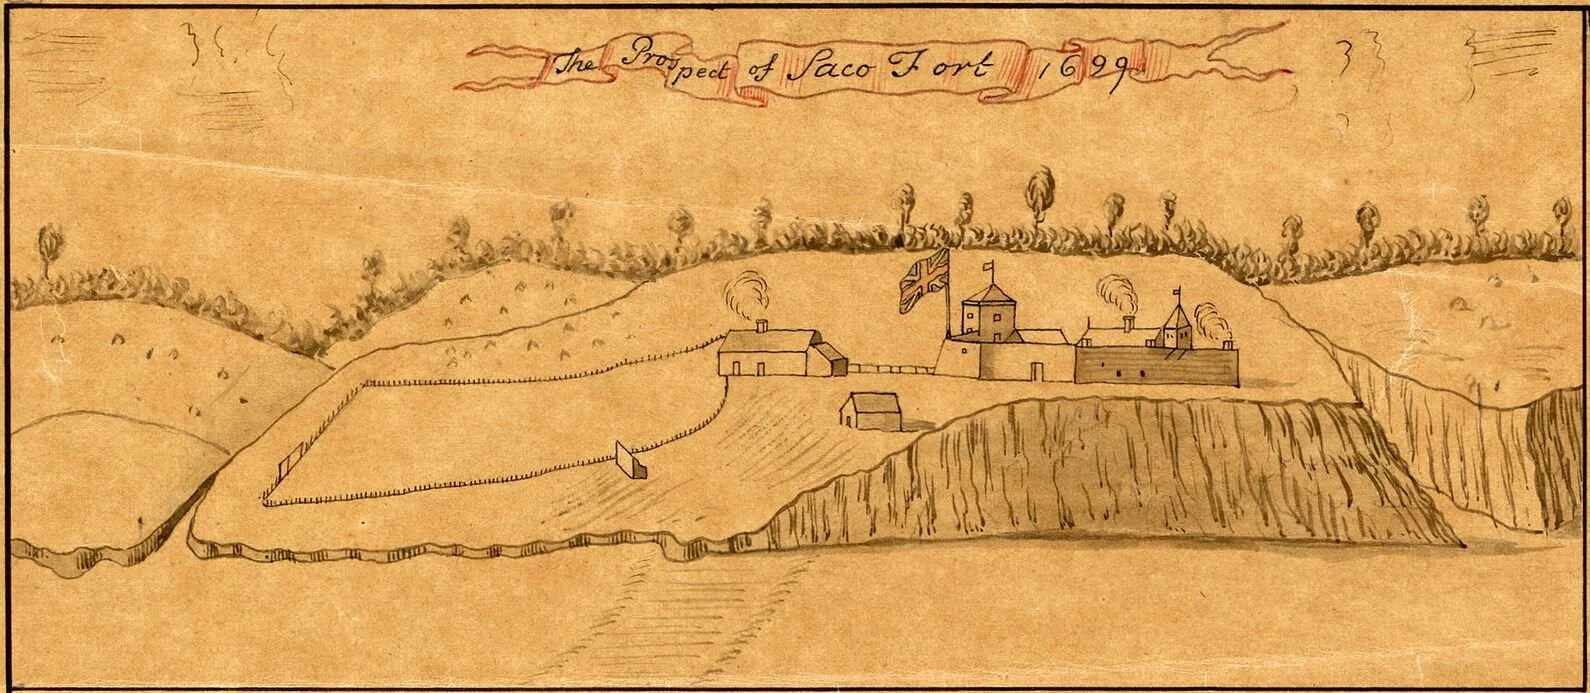 The Prospect of Saco Fort 1699